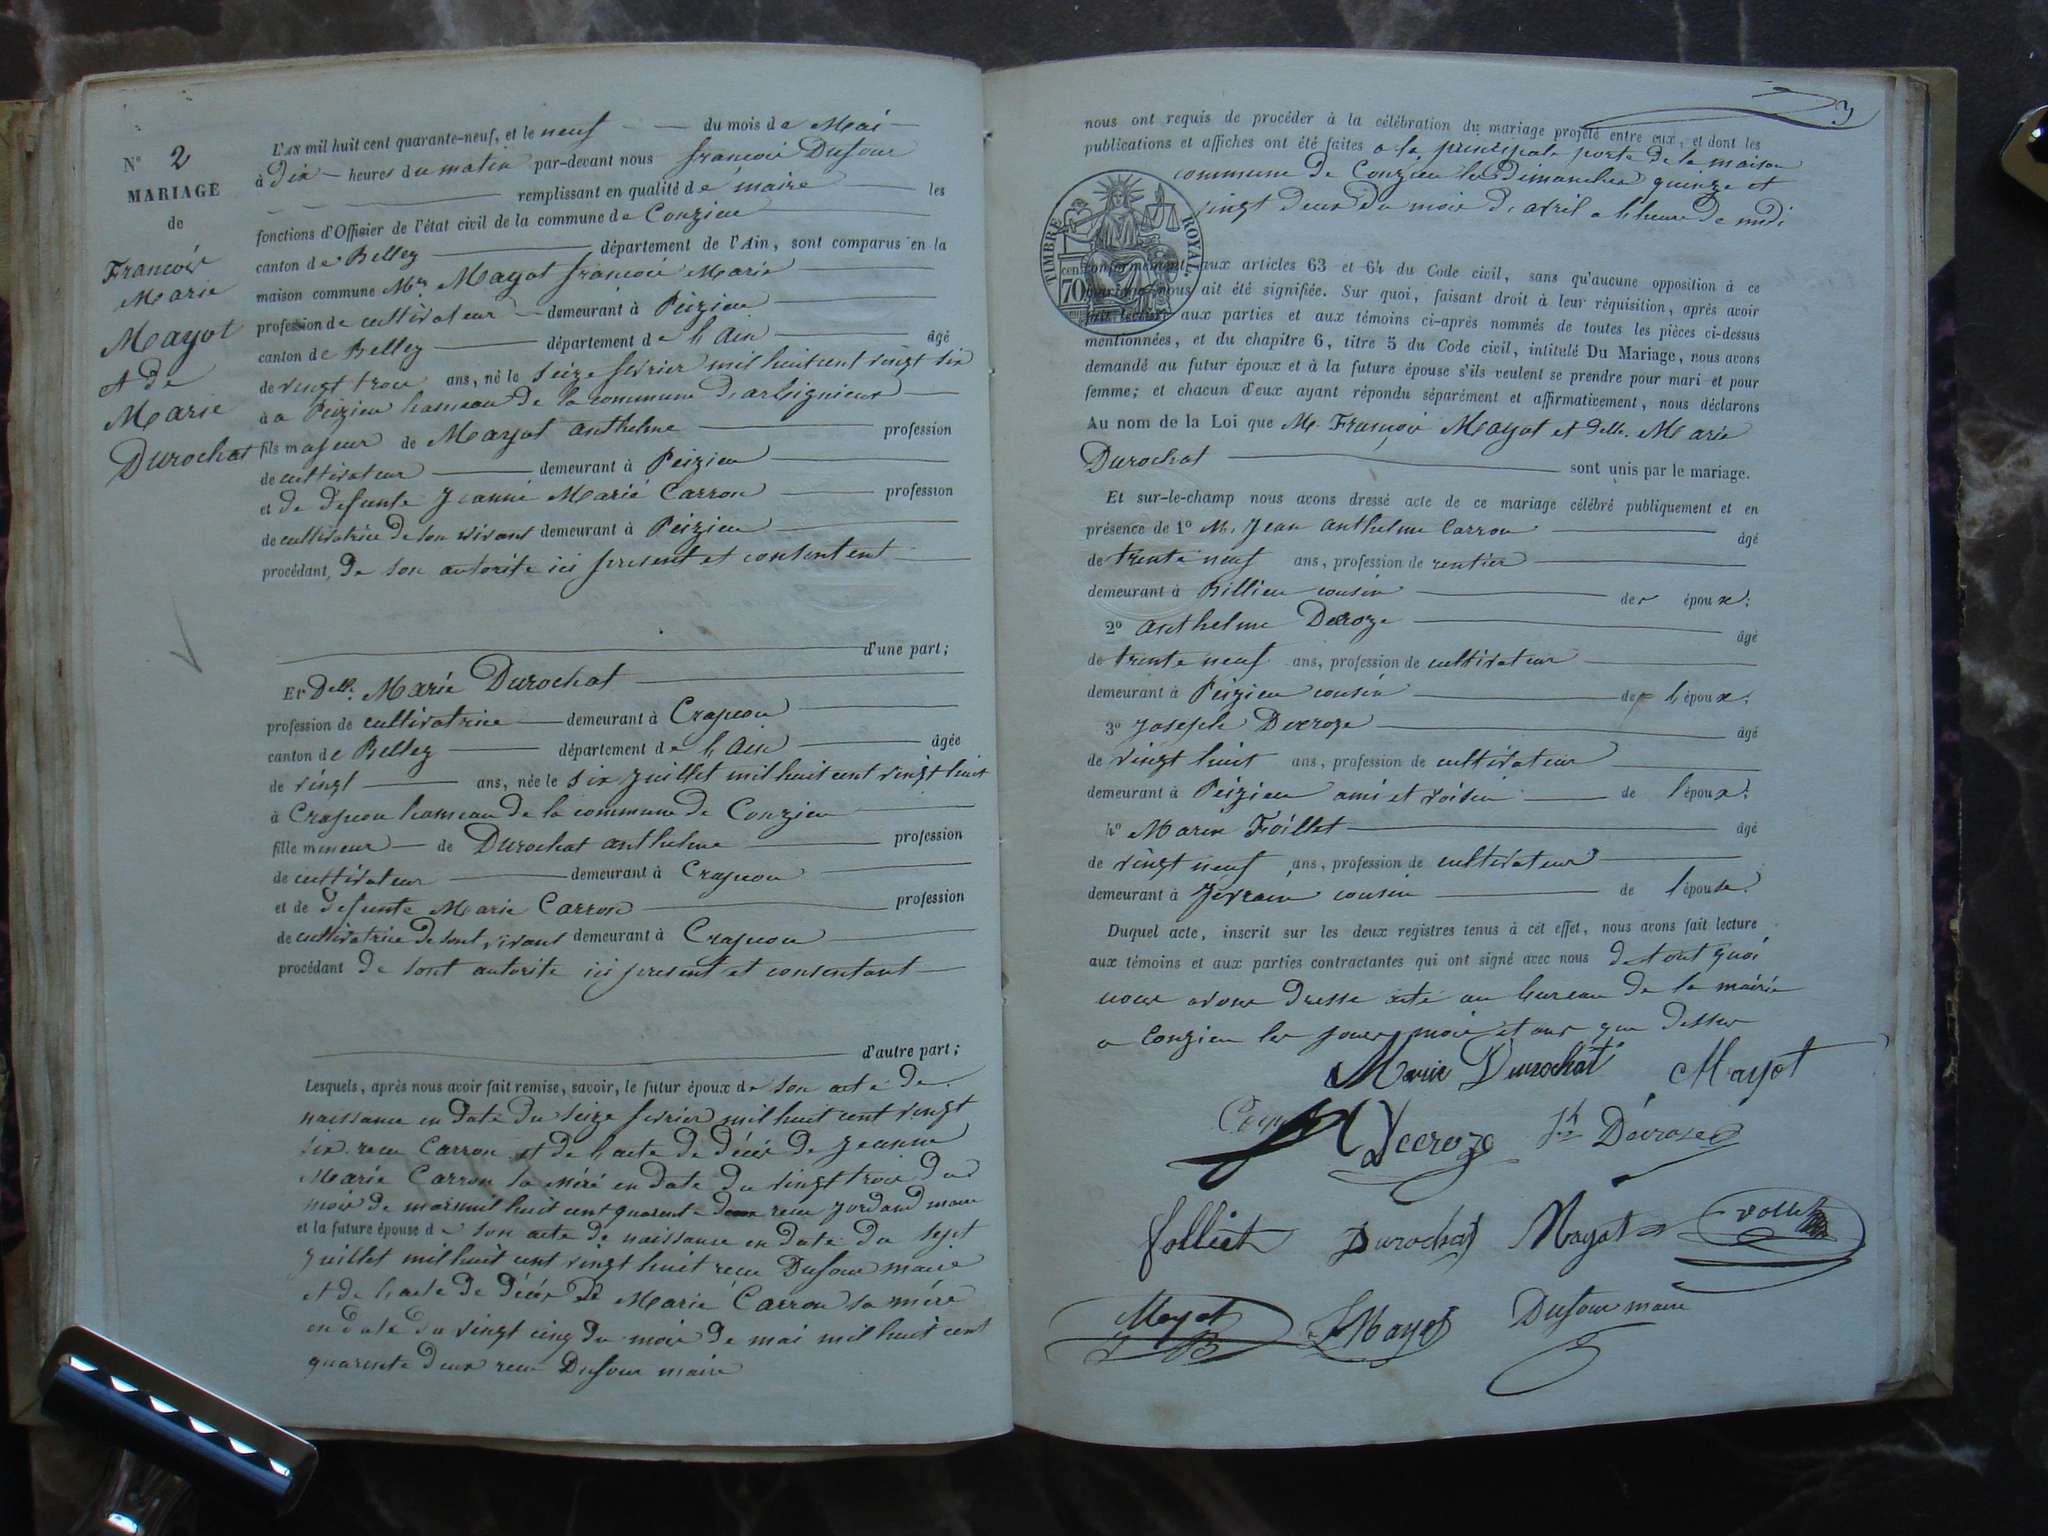 N° 2
MARIAGE
de
Francois
Marie
Mayot
et de
Marie
Durochat
L'AN mil huit cent quarante-neuf, et le neuf du mois de Mai
à dix heures du matin par-devant nous francois Dufour
remplissant en qualité de maire les
fonctions d'Officier de l'état civil de la commune de Conzieu
canton de Belley département de l'Ain, sont comparus en la
maison commune Mr Mayot francois Marie
profession de cultivateur demeurant à Peizieu
canton de Belley département de l'Ain âgé
de vingt trois ans, né le seize fevrier mil huit cent vingt six
à a Peizieu hameau de la commune d'arbignieux
fils majeur de Mayot anthelme profession
de cultivateur demeurant à Peizieu
et de defunte Jeanne Marie Carron profession
de cultivatrice de son vivant demeurant à Peizieu
procédant de son autorite ici present et consentent
d'une part;
ET Delle Marie Durochat
profession de cultivatrice demeurant à Crapeou
canton de Belley département de l'Ain âgée
de vingt ans, née le six juillet mil huit cent vingt huit
à Crapeou hameau de la commune de Conzieu
fille mineur de Durochat anthelme profession
de cultivateur demeurant à Crapeou
et de defunte Marie Carron profession
de cultivatrice de sont vivant demeurant à Crapeou
procédant de sont autorite ici present et consentant
d'autre part;
Lesquels, après nous avoir fait remise, savoir, le futur époux de son acte de
naissance en date du seize fevrier mil huit cent vingt
six recu Carron et de l'acte de décés de Jeanne
Marie Carron sa mére en date du vingt trois du
mois de mars mil huit cent quarente deux recu Jordand maire
et la future épouse de son acte de naissance en date du sept
juillet mil huit cent vingt huit recu Dufour maire
et de l'acte de décés de Marie Carron sa mére
en date du vingt cinq du mois de mai mil huit cent
quarente deux recu Dufour maire
3
nous ont requis de procéder à la célébration du mariage projeté entre eux, et dont les
publications et affiches ont été faites a la principale porte de la maison
commune de Conzieu les dimanches quinze et
vingt deux du mois d'avril a l'heure de midi
TIMBRE ROYAL
70 cent
conformément aux articles 63 et 64 du Code civil, sans qu'aucune opposition à ce
mariage nous ait été signifiée. Sur quoi, faisant droit à leur réquisition, après avoir
fait lecture aux parties et aux témoins ci-après nommés de toutes les pièces ci-dessus
mentionnées, et du chapitre 6, titre 5 du Code civil, intitulé Du Mariage, nous avons
demandé au futur époux et à la future épouse s'ils veulent se prendre pour mari et pour
femme; et chacun d'eux ayant répondu séparément et affirmativement, nous déclarons
Au nom de la Loi que Mr François Mayot et delle Marie
Durochat sont unis par le mariage.
Et sur-le-champ nous avons dressé acte de ce mariage célébré publiquement et en
présence de 1° Mr Jean anthelme Carron âgé
de trente neuf ans, profession de rentier
demeurant à Billieu cousin des époux.
2° anthelme Decroze âgé
de trente neuf ans, profession de cultivateur
demeurant à Peizieu cousin de l'époux.
3° Joseph Decroze âgé
de vingt huit ans, profession de cultivateur
demeurant à Peizieu ami et voisin de l'époux.
4° Marin Folliet âgé
de vingt neuf ans, profession de cultivateur
demeurant à Jevrain cousin de l'épouse.
Duquel acte, inscrit sur les deux registres tenus à cet effet, nous avons fait lecture
aux témoins et aux parties contractantes qui ont signé avec nous de tout quoi
nous avons dresse acte au bureau de la mairie
a Conzieu les jours mois et ans que dessus
Marie Durochat Mayot
Decroze Jh Décroze
folliet Durochat Mayot
Mayot Mayot Dufour maire